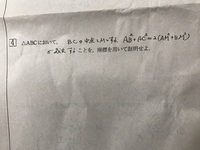 4 △ABCにおいて、BCの中点をMとすると AB²+AC²=2(AM²+BM²)
が成立することを、座標を用いて証明せよ。